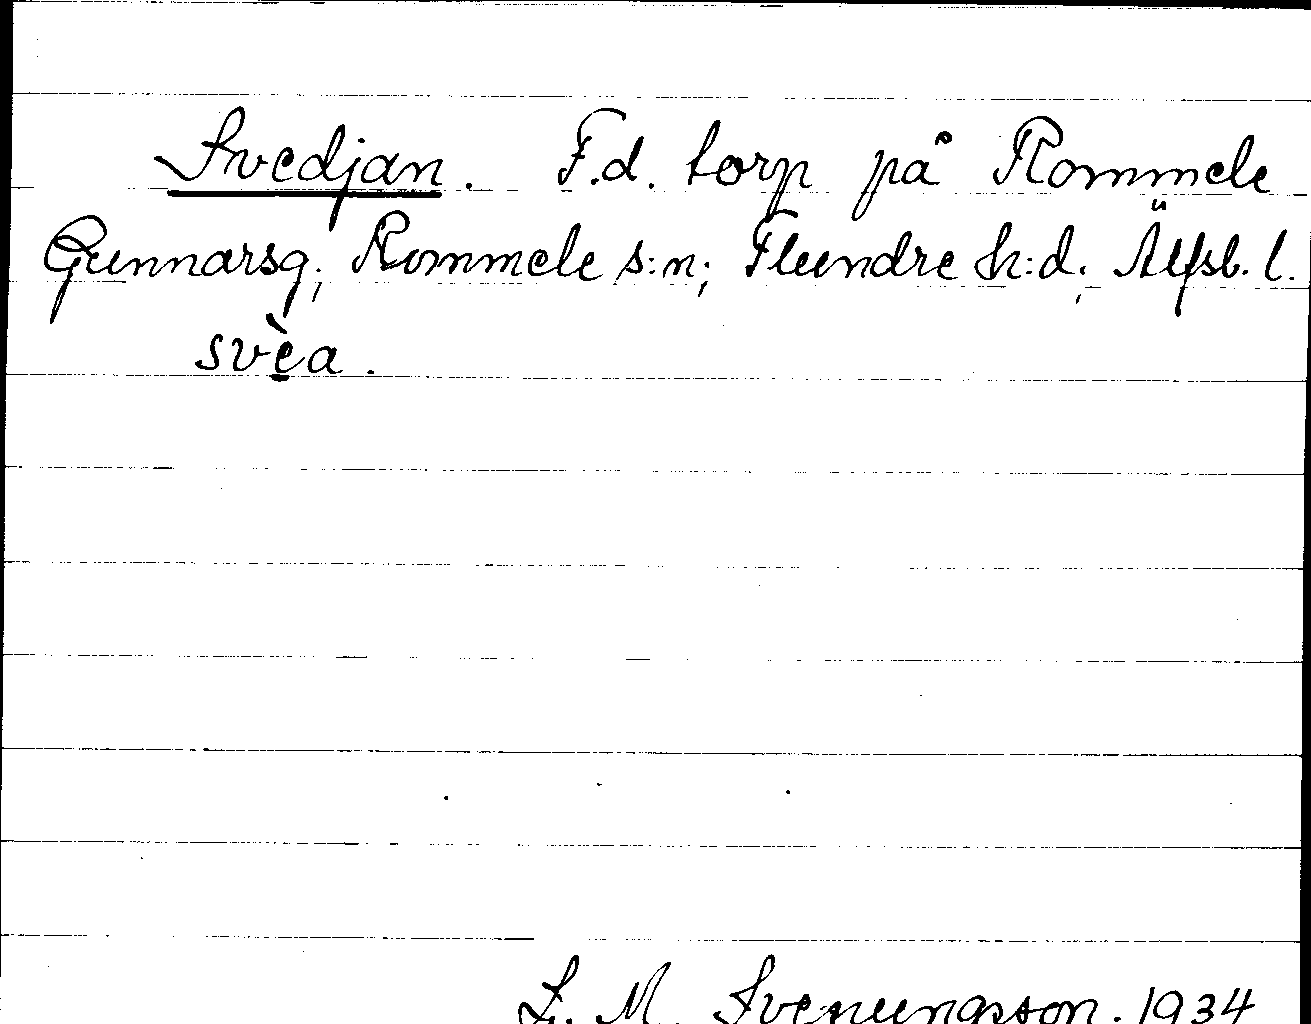 Svedjan. F.d. torp på Rommele
Gunnarsg; Rommele s:n; Flundre h:d; Älfsb. l.
svèa.
S. M. Svenungsson. 1934